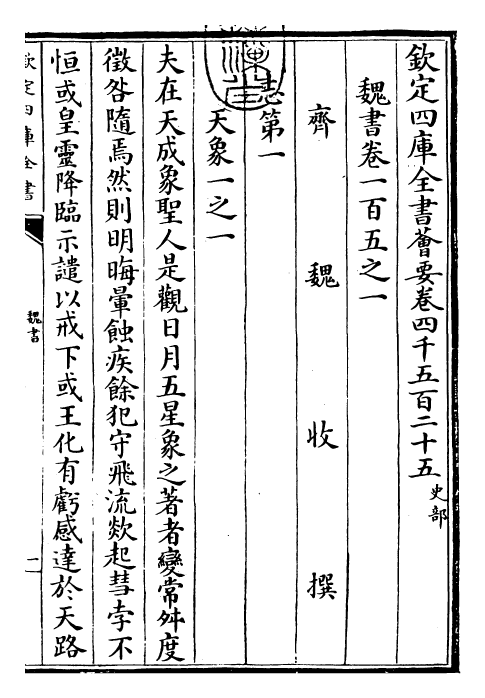 欽定四庫全書薈要卷四千五百二十五史部
魏書卷一百五之一
齊魏收撰
志第一
天象一之一
夫在天成象聖人是觀日月五星象之著者變常舛度
徵咎隨焉然則明晦暈蝕疾餘犯守飛流欻起彗孛不
恒或皇靈降臨示譴以戒下或王化有虧感達於天路
欽定四庫全書
魏書
一